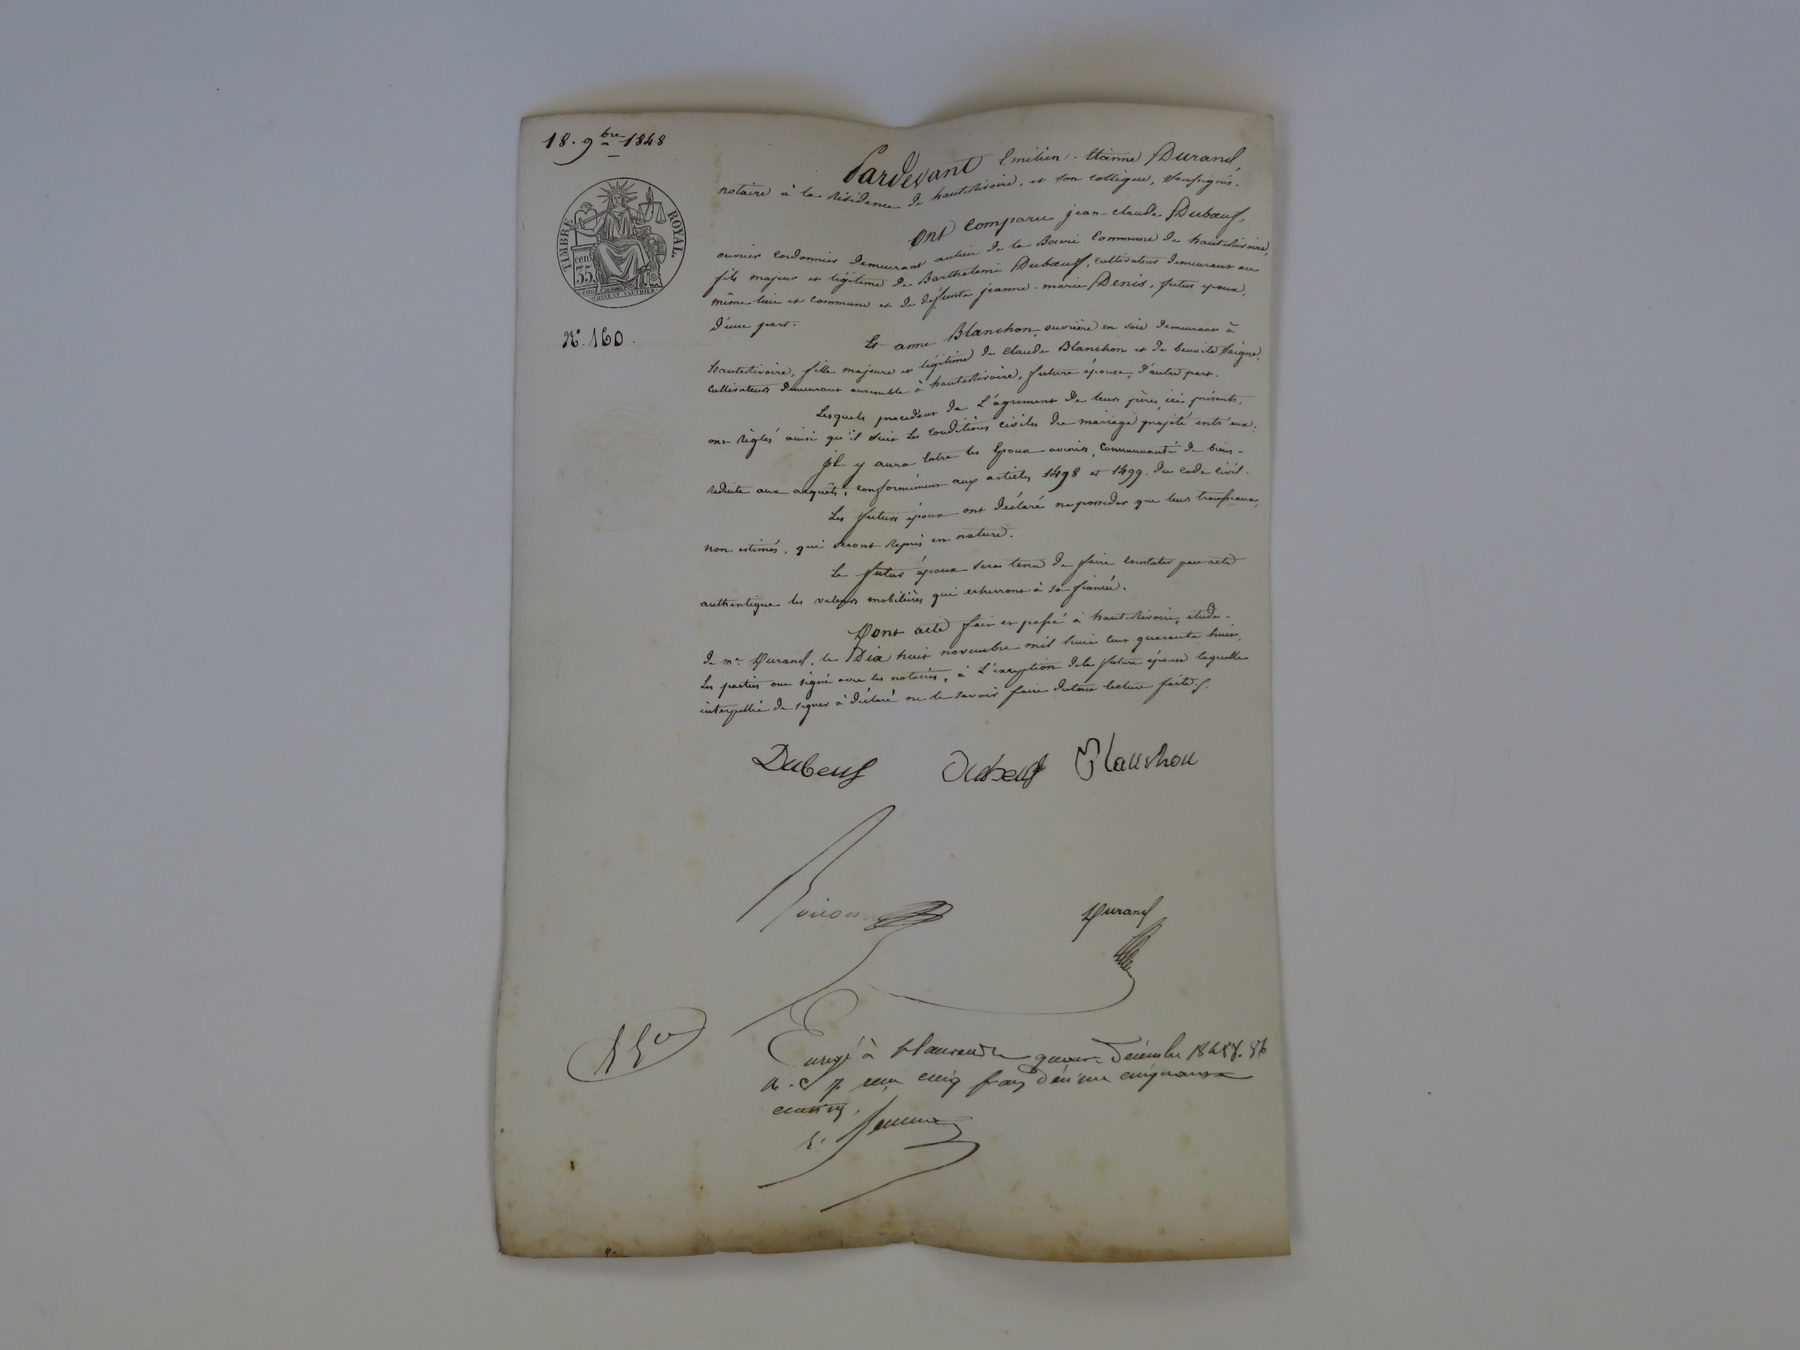 18. 9bre 1848
TIMBRE ROYAL
cent
35
No. 160.
Pardevant Emilien-Etienne Durand,
notaire à la Résidence de hauterivoire, et son collègue, soussignés.
Ont comparu jean-claude Dubœuf,
ouvrier cordonnier demeurant au lieu de la Bourie Commune de hauterivoire,
fils majeur et légitime de Barthelemi Dubœuf, cultivateur demeurant au
même lieu et commune et de défunte jeanne-marie Denis, futur époux,
d'une part.
Et anne Blanchon, ouvrière en soie demeurant à
hauterivoire, fille majeure et légitime de claude Blanchon et de benoite
cultivateurs demeurant ensemble à hauterivoire, future épouse, d'autre part.
Lesquels procédant de l'agrément de leurs pères, ici présents,
ont réglé ainsi qu'il suit les conditions civiles du mariage projeté entr'eux.
il y aura Entre les Epoux avenir, communauté de biens-
réduite aux acquêts, conformément aux articles 1498 et 1499 du code civil.
Les futurs époux ont déclaré ne posséder que leurs trousseaux,
non estimés, qui seront repris en nature.
Le futur époux sera tenu de faire constater par acte
authentique les valeurs mobilières qui echerront à sa fiancée.
Dont acte fait et passé à hauterivoire, etude-
de me. Durand, le Dix huit novembre mil huit cent quarante huit,
Les parties ont signé avec les notaires, à l'exception de la future épouse laquelle
interpellée de signer à déclaré ne le savoir faire de tout lecture faite./.
Dubeuf Dubeuf Blanchon
Durand
Enregé à St Laurent le décembre 1848. 86
cinq francs décime cinquante
centimes.